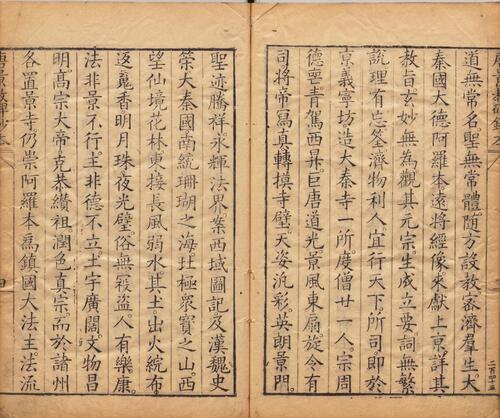 道無常名聖無常體隨方設教密濟羣生大
秦國大德阿羅本遠將經像來獻上京詳其
教旨玄妙無為觀其元宗生成立要詞無繁
說理有忘筌濟物利人宜行天下所司即於
京義寧坊造大秦寺一所度僧廿一人宗周
德喪青駕西昇巨唐道光景風東扇旋令有
司將帝寫真轉摸寺壁天姿汎彩英朗景門
聖迹騰祥永輝法界案西域圖記及漢魏史
策大秦國南統珊瑚之海北極衆寶之山西
望仙境花林東接長風弱水其土出火綄布
返魂香明月珠夜光璧俗無寇盜人有樂康
法非景不行主非德不立土宇廣闊文物昌
明高宗大帝克恭纘祖潤色真宗而於諸州
各置景寺仍崇阿羅本爲鎮國大法主法流